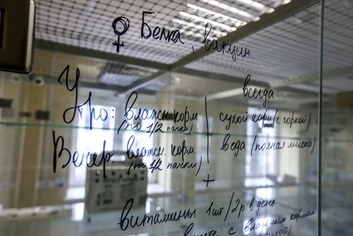 ♀ Белка, вакцин.
Утро: влажн. корм
(по 1/2 пачки)
Вечер: влажн. корм
(по 1/2 пачки)
всегда
сухой корм (с горкой)
вода (полная миска)
+
витамины 1шт/2р. в день
с влажным кормом